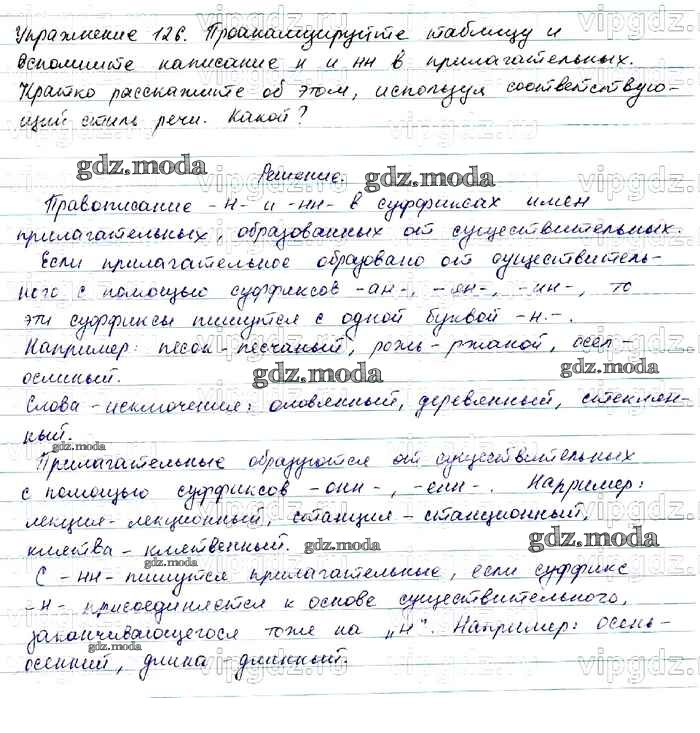 Упражнение 126. Проанализируйте таблицу и
вспомните написание н и нн в прилагательных.
Кратко расскажите об этом, используя соответствую-
щий стиль речи. Какой?
gdz.moda
Решение.
gdz.moda
Правописание -н- и -нн- в суффиксах имен
прилагательных, образованных от существительных.
Если прилагательное образовано от существитель-
ного с помощью суффиксов -ан-, -ян-, -ин-, то
эти суффиксы пишутся с одной буквой -н-.
Например: песок - песчаный, рожь - ржаной, осёл -
ослиный.
gdz.moda
gdz.moda
Слова - исключения: оловянный, деревянный, стеклян-
ный.
gdz.moda
Прилагательные образуются от существительных
с помощью суффиксов -онн-, -енн-. Например:
лекция - лекционный, станция - станционный,
клятва - клятвенный.
gdz.moda
gdz.moda
gdz.moda
С -нн- пишутся прилагательные, если суффикс
-н- присоединяется к основе существительного,
заканчивающегося тоже на „н". Например: осень-
осенний, длина - длинный.
gdz.moda
vipgdz.ru